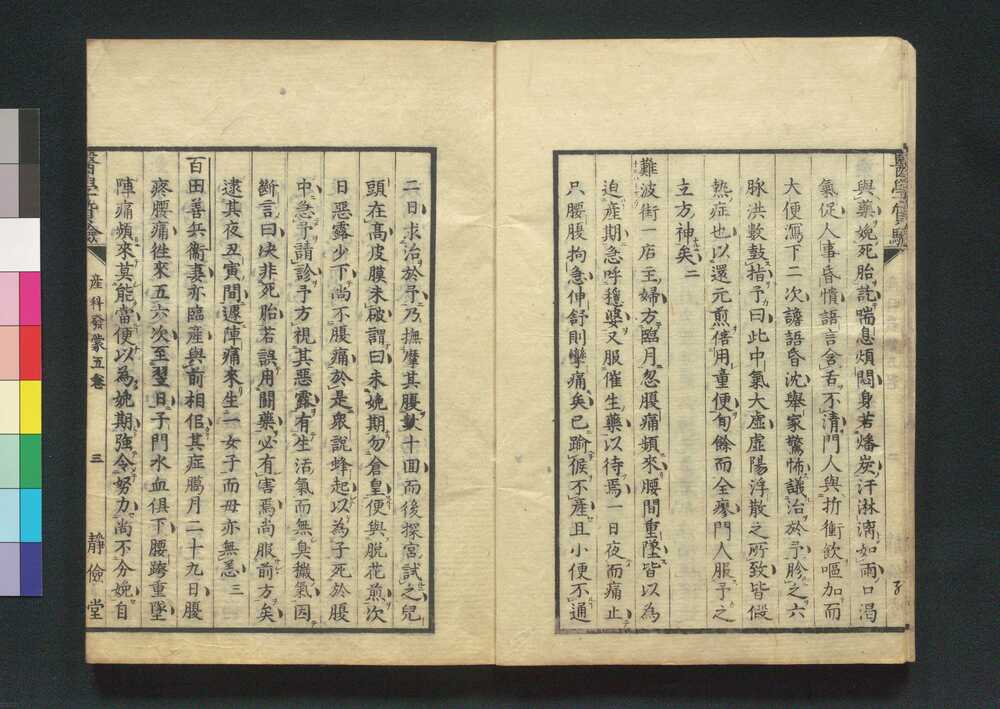 與藥娩死胎訖喘息煩悶身若燔炭汗淋漓如雨口渴
氣促人事昏憒語言含舌不清門人與折衝飲嘔加而
大便瀉下二次譫語昏沈舉家驚怖議治於予胗之六
脉洪數鼓指予曰此中氣大虛虛陽浮散之所致皆假
熱症也以還元煎倍用童便旬餘而全瘳門人服予之
立方神矣二
難波街一店主婦方臨月忽腹痛頻來腰間重墜皆以為
迫產期急呼穩婆又服催生藥以待焉一日夜而痛止
只腰腹拘急伸舒則攣痛矣已踰候不產且小便不通
二日求治於予乃撫摩其腹數十回而後探宮試之兒
頭在高皮膜未破謂曰未娩期勿倉皇便與脫花煎次
日惡露少下尚不腹痛於是衆說蜂起以為子死於腹
中急予請診予方視其惡露有生活氣而無臭穢氣因
斷言曰决非死胎若誤用開藥必有害焉尚服前方矣
逮其夜丑寅間遽陣痛來生一女子而母亦無恙三
百田善兵衞妻亦臨產與前相倍其症臈月二十九日腹
疼腰痛徃來五六次至翌日子門水血俱下腰跨重墜
陣痛頻來莫能當便以為娩期強令努力尚不分娩自
產科發蒙五卷
三
靜儉堂